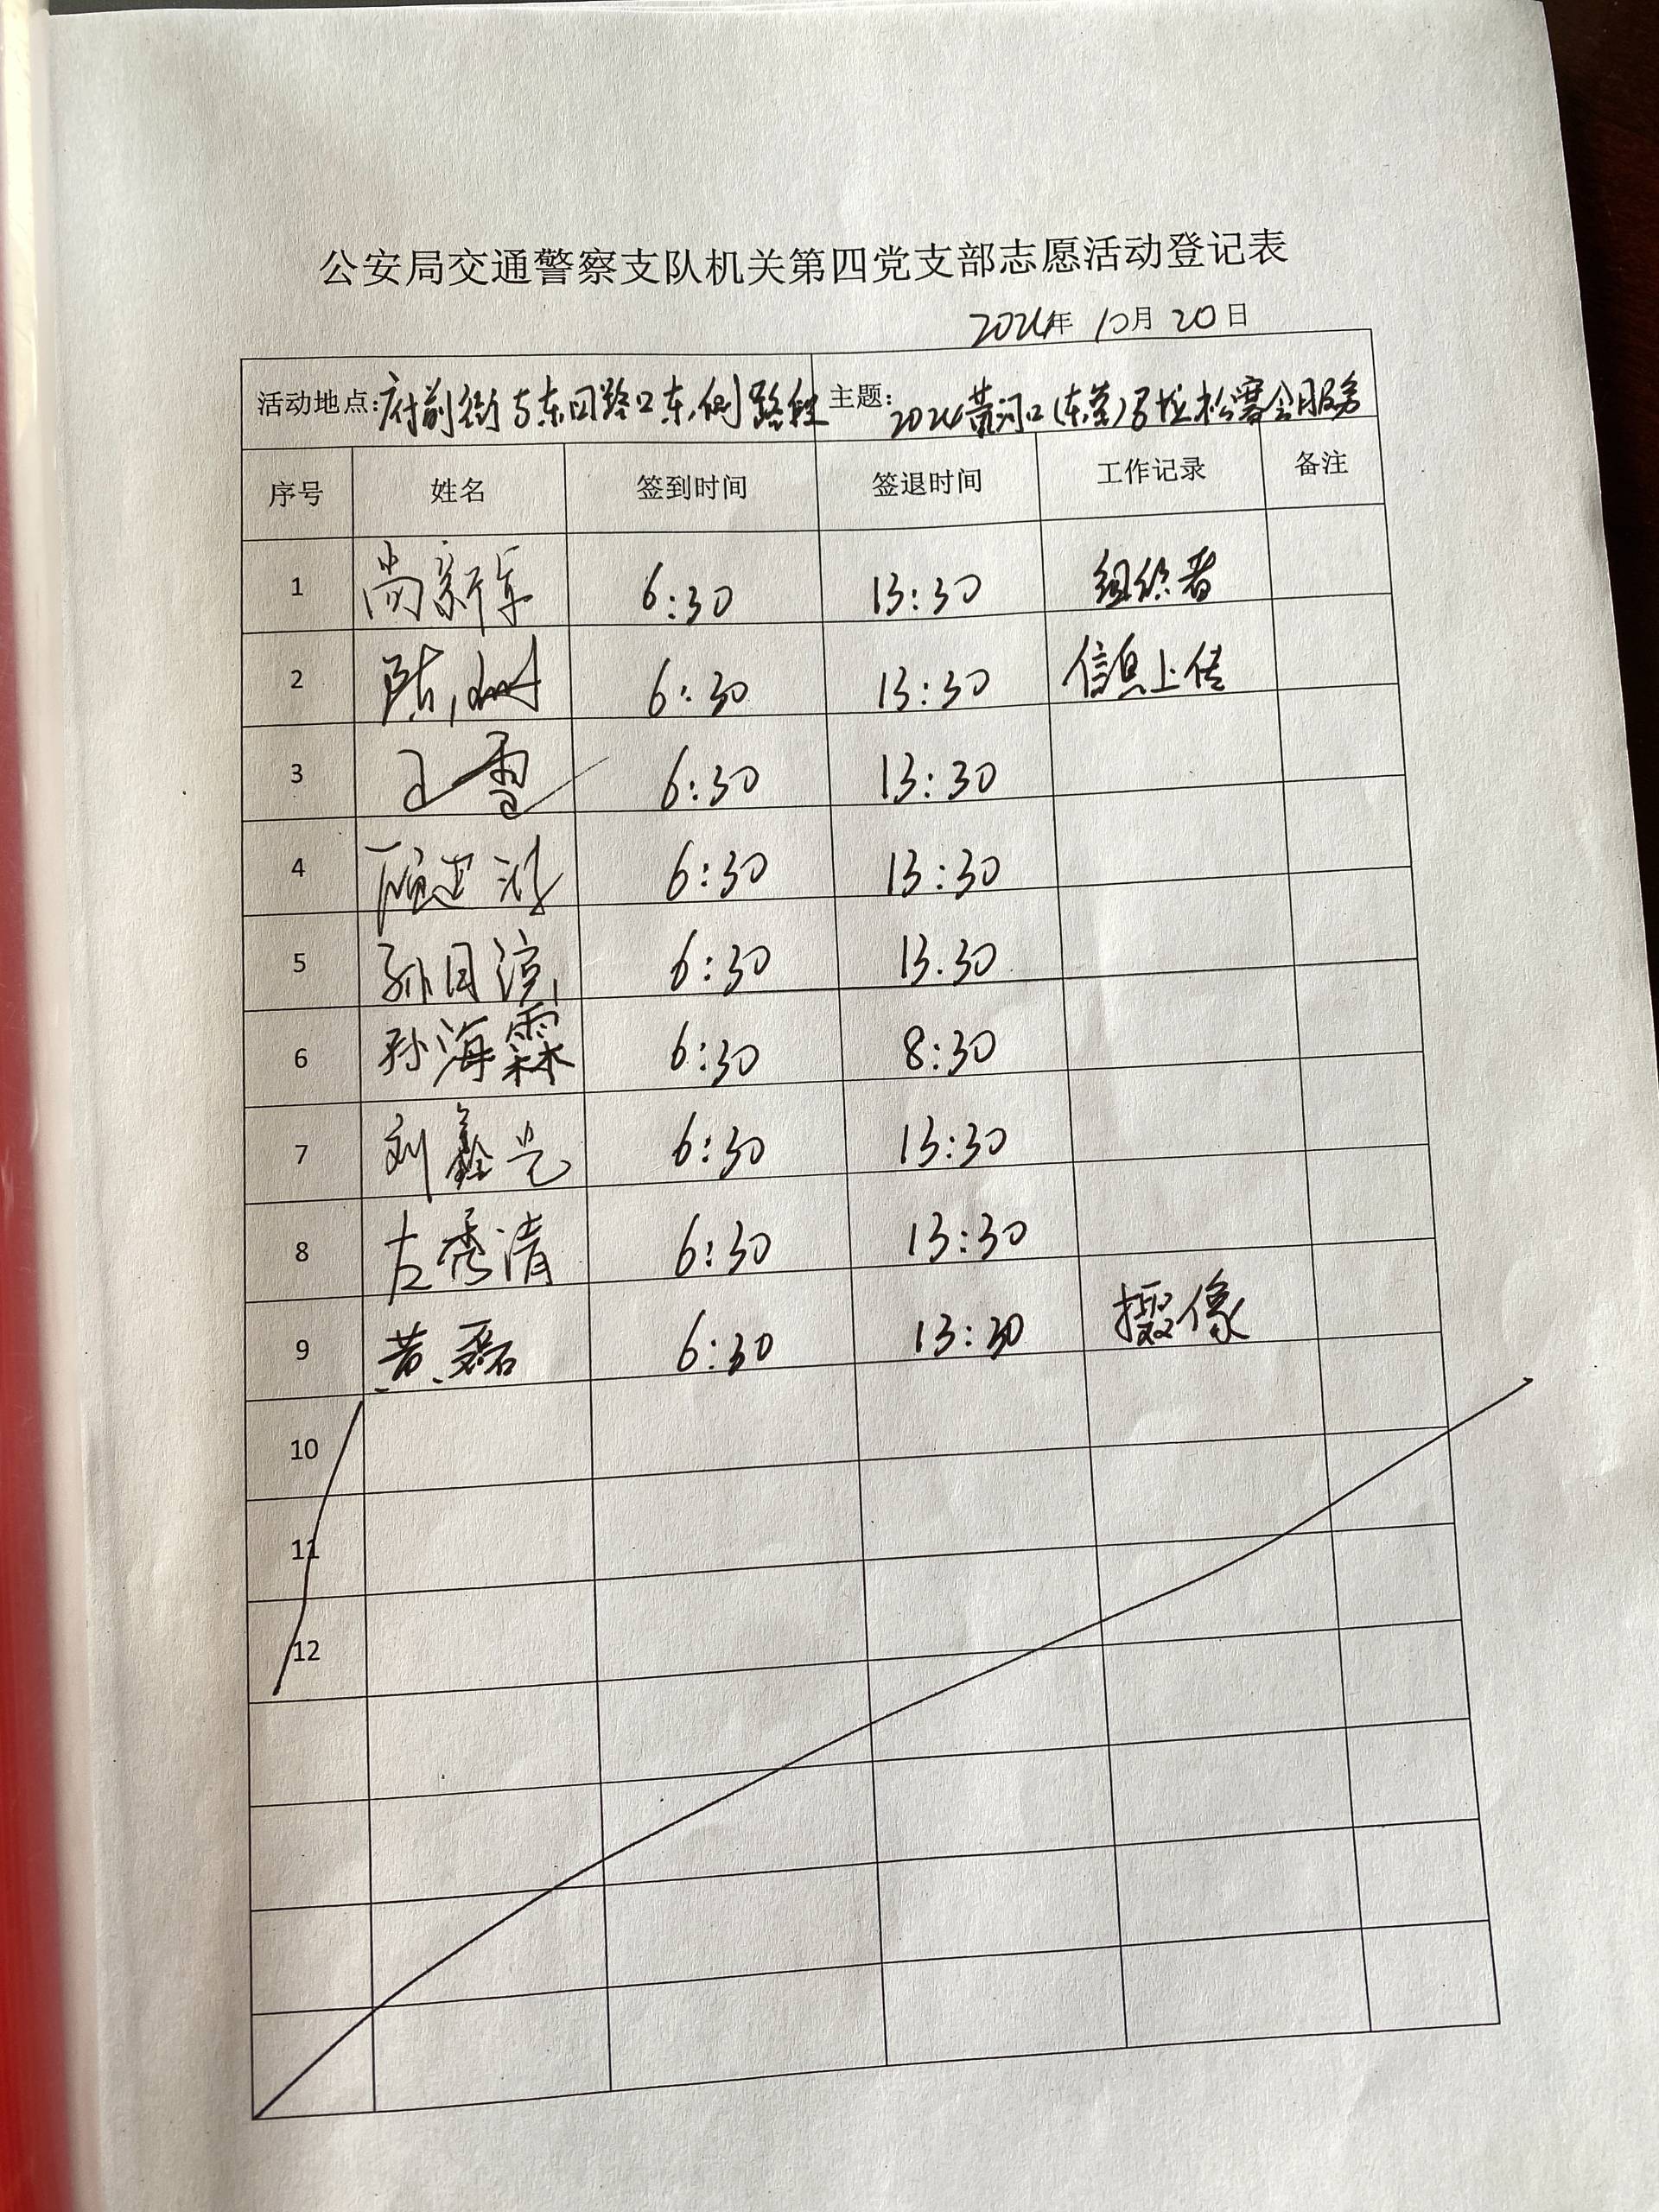 公安局交通警察支队机关第四党支部志愿活动登记表
2024年 10月 20日
活动地点:府前街与东四路口东侧路段 主题:2024黄河口(东营)马拉松赛会服务
序号 姓名 签到时间 签退时间 工作记录 备注
1 尚新军 6:30 13:30 组织者
2 陈 6:30 13:30 信息上传
3 王雪 6:30 13:30
4 6:30 13:30
5 孙月 6:30 13.30
6 孙海霖 6:30 8:30
7 刘鑫 6:30 13:30
8 左秀清 6:30 13:30
9 黄磊 6:30 13:30 摄像
10
11
12